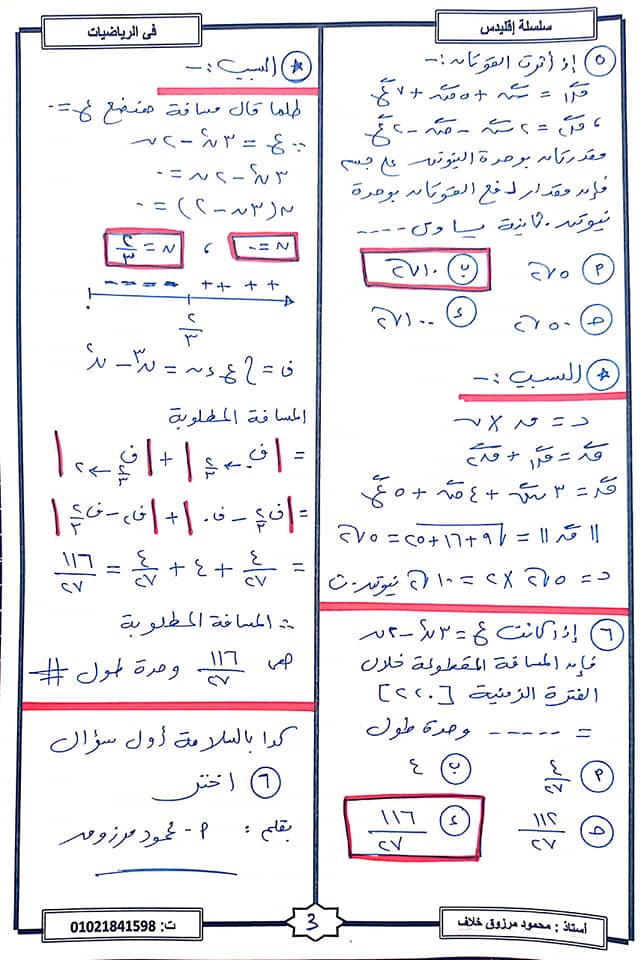 سلسلة إقليدس
فى الرياضيات
٥ إذ أثرت القوتان :-
ق١ = س + ٥ص + ٧ع
، ق٢ = ٢س - ص - ٢ع
مقدرتان بوحدة النيوتن على جسم
فإن مقدار دفع القوتان بوحدة
نيوتن . ثانية يساوى ----
٢√٥
ب ٢√١٠
ح ٢√٥٠
ء ٢√١٠٠
السبب :-
د = ق × ن
ق = ق١ + ق٢
ق = ٣س + ٤ص + ٥ع
|| ق || = √٩+١٦+٢٥ = ٥√٢
د = ٥√٢ × ٢ = ١٠√٢ نيوتن.ث
٦ إذا كانت ع = ٣ن² - ٢ن
فإن المسافة المقطوعة خلال
الفترة الزمنية [٠،٢]
= ----- وحدة طول
٤/٢٧
ب ٤
ح ١١٢/٢٧
ء ١١٦/٢٧
السبب :-
طلما قال مسافة هنضع ع = ٠
∵ ع = ٣ن² - ٢ن
٣ن² - ٢ن = ٠
ن(٣ن - ٢) = ٠
ن = ٠ ، ن = ٢/٣
---- ++++
٠ ٢/٣
ف = ∫ ع ءن = ن³ - ن²
المسافة المطلوبة
= | ف ٠ ← ٢/٣ | + | ف ٢/٣ ← ٢ |
= | ف٢/٣ - ف٠ | + | ف٢ - ف٢/٣ |
= ٤/٢٧ + ٤ + ٤/٢٧ = ١١٦/٢٧
∴ المسافة المطلوبة
هى ١١٦/٢٧ وحدة طول #
كدا بالسلامة أول سؤال
٦ اختر
بقلم : م - محمود مرزوق
أستاذ : محمود مرزوق خلاف
3
ت: 01021841598